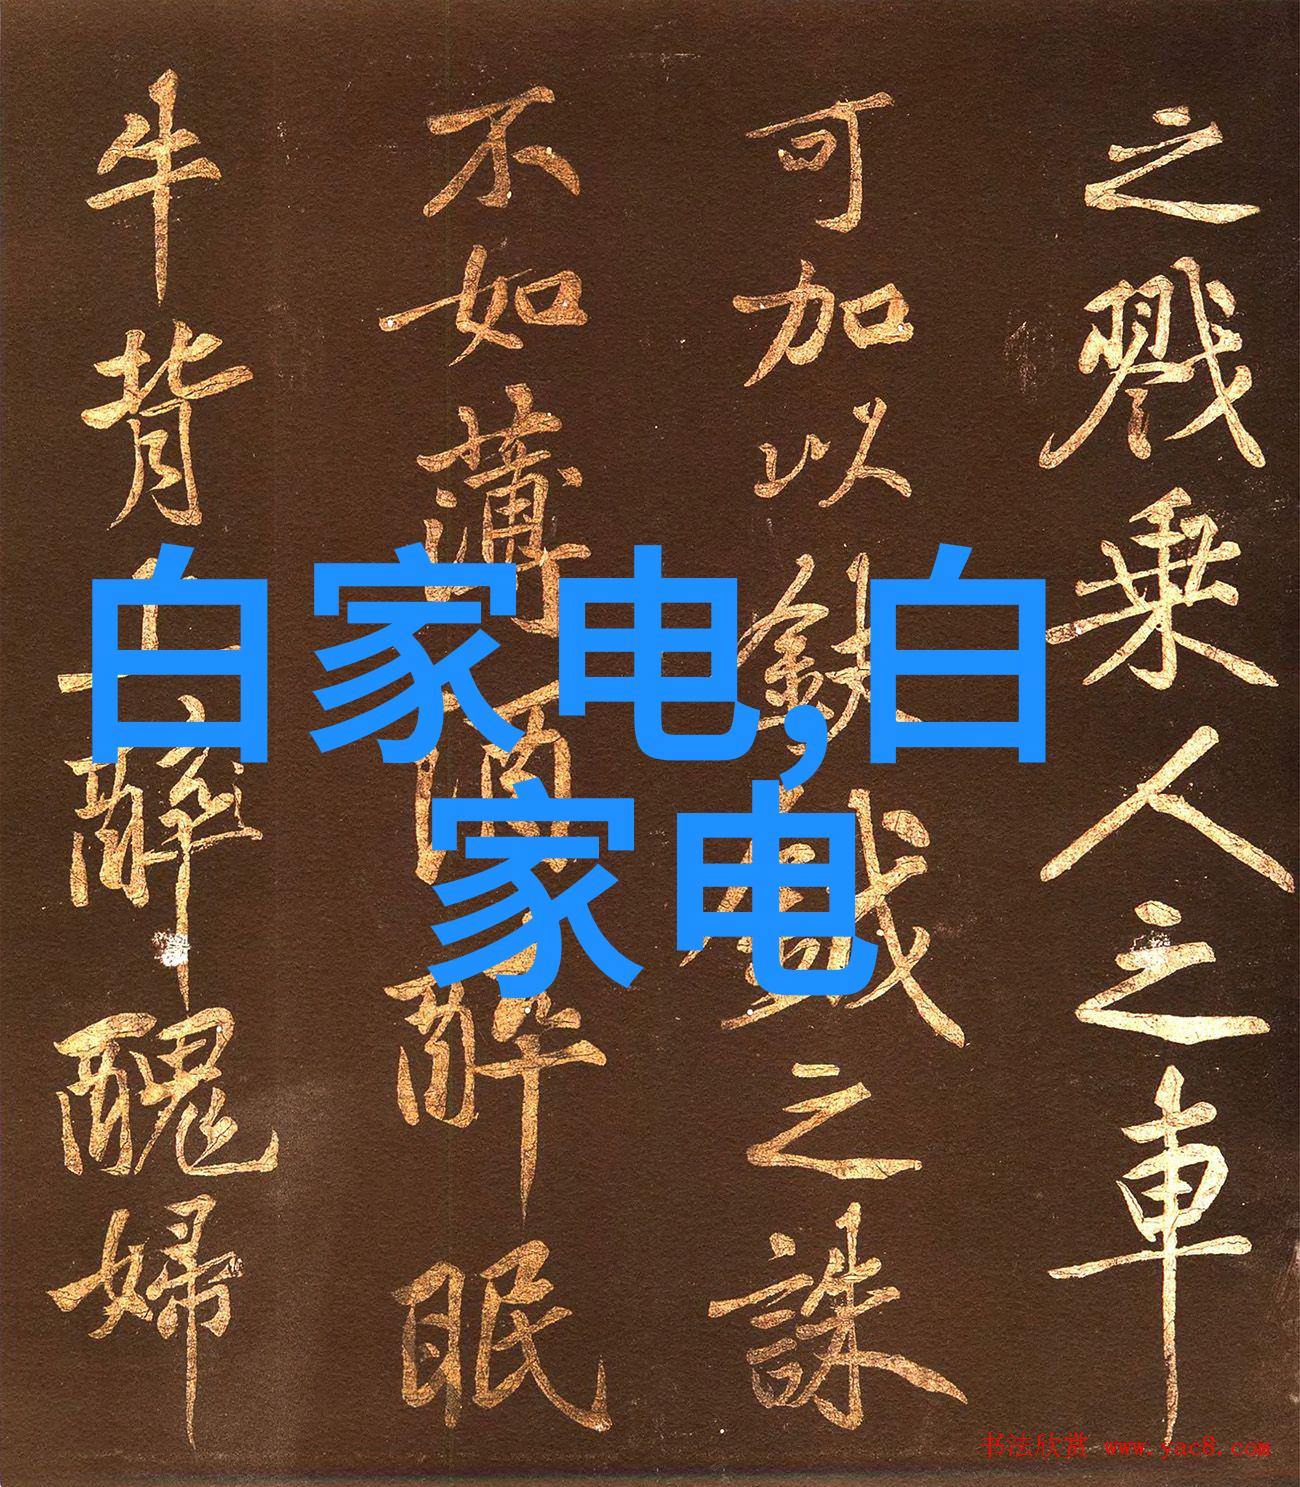 之戮乘人之車
可加以鈇鉞之誅
不如薄酒醉眠
牛背上醉醜婦
白家电,白
家电
书法欣赏 www.yac8.com